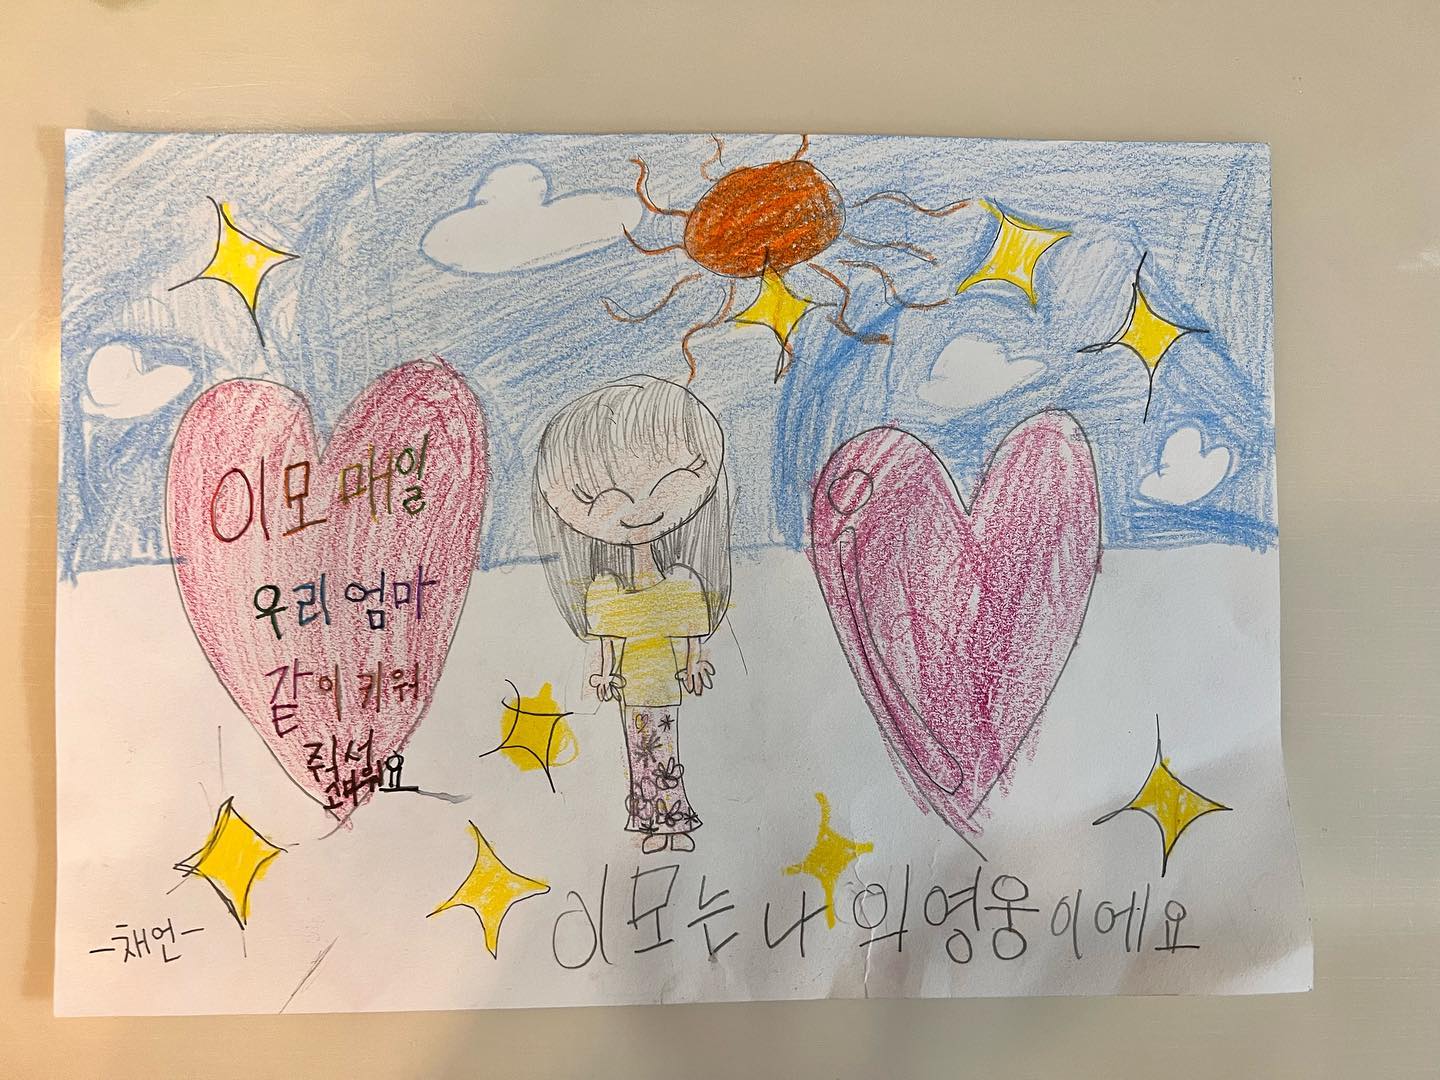 이모 매일
우리 엄마
같이 키워
줘서
고마워요
이모는 나의 영웅이에요
-채언-